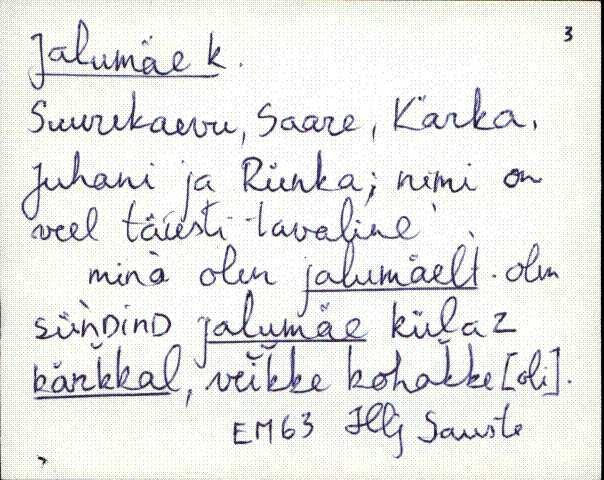 3
Jalumäe k.
Suurekaevu, Saare, Kärka,
Juhani ja Riinka; nimi on
veel täiesti tavaline
minà olen jalumäelt. olen
sünDinD jalumäe külaz
kärkkal, veikke kohakke [oli].
EM63 Illj Sauste